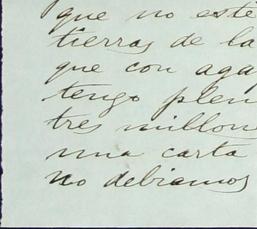 que no este
tierras de la
que con aga
tengo plen
tres millon
una carta
no debiamos